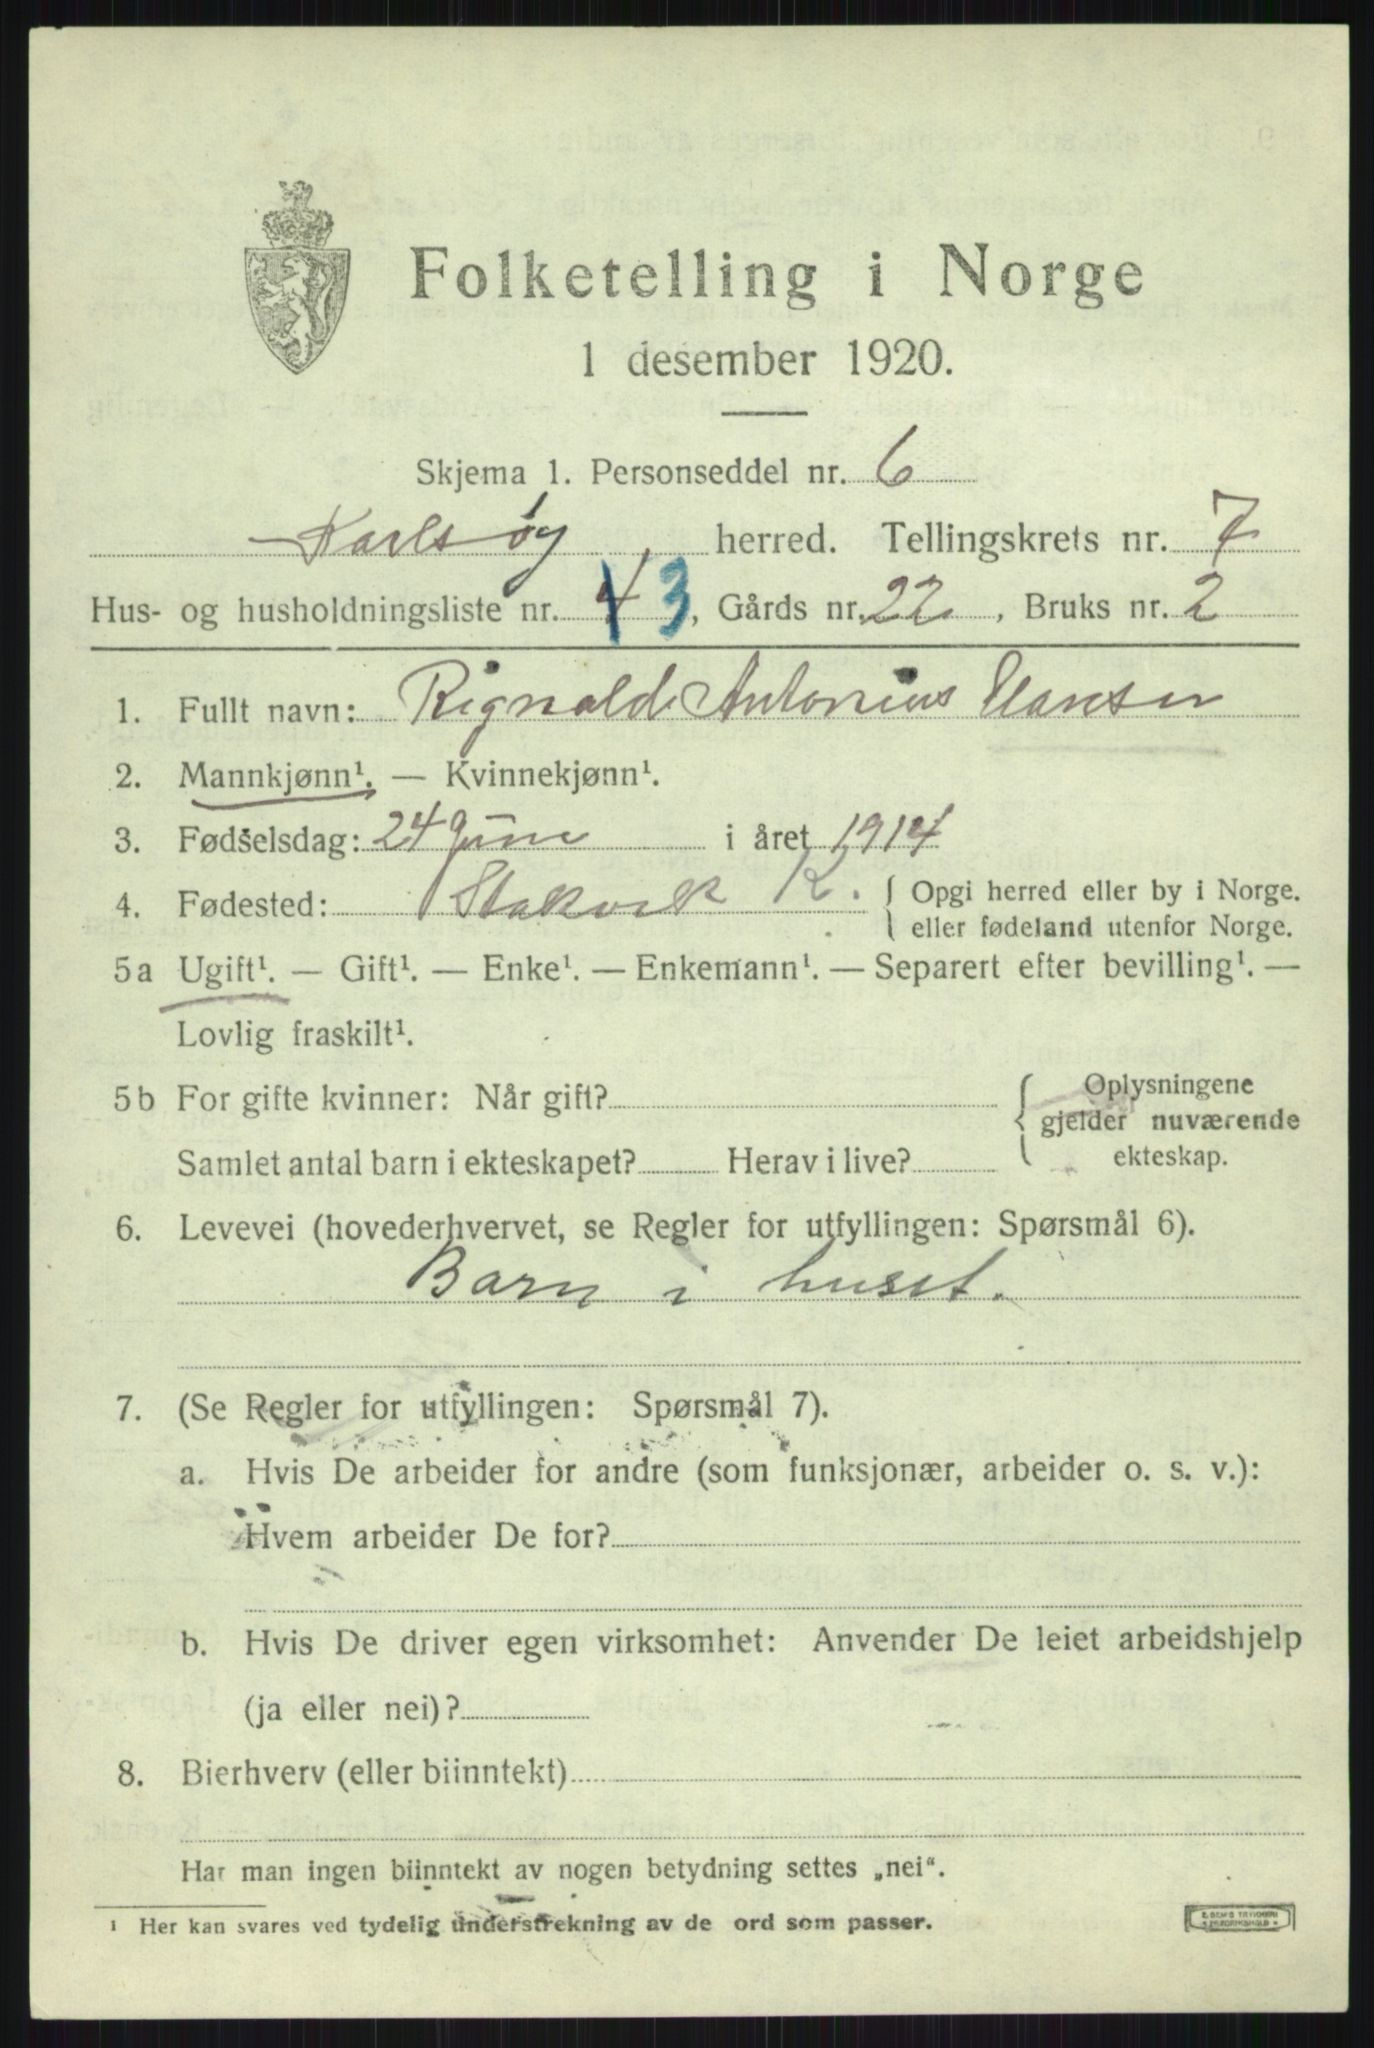 Folketelling i Norge
1 desember 1920.
Skjema 1. Personseddel nr. 6
Karlsøy herred. Tellingskrets nr. 7
Hus- og husholdningsliste nr. 3, Gårds nr. 22, Bruks nr. 2
1. Fullt navn: Rignald Antonius Hansen
2. Mannkjønn¹. — Kvinnekjønn¹.
3. Fødselsdag: 24 Juni i året 1914
4. Fødested: Stakvik K. Opgi herred eller by i Norge.
eller fødeland utenfor Norge.
5a Ugift¹. — Gift¹. — Enke¹. — Enkemann¹. — Separert efter bevilling¹. —
Lovlig fraskilt¹.
5b For gifte kvinner: Når gift? Oplysningene
gjelder nuværende
Samlet antal barn i ekteskapet? Herav i live? ekteskap.
6. Levevei (hovederhvervet, se Regler for utfyllingen: Spørsmål 6).
Barn i huset.
7. (Se Regler for utfyllingen: Spørsmål 7).
a. Hvis De arbeider for andre (som funksjonær, arbeider o. s. v.):
Hvem arbeider De for?
b. Hvis De driver egen virksomhet: Anvender De leiet arbeidshjelp
(ja eller nei)?
8. Bierhverv (eller biinntekt)
Har man ingen biinntekt av nogen betydning settes „nei“.
¹ Her kan svares ved tydelig understrekning av de ord som passer.